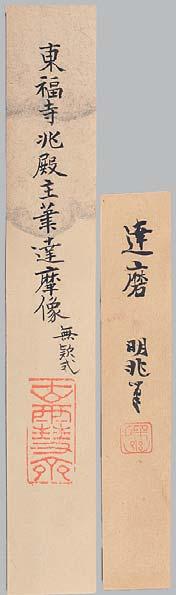 東福寺兆殿主筆達摩像
無款式
達磨
明兆筆